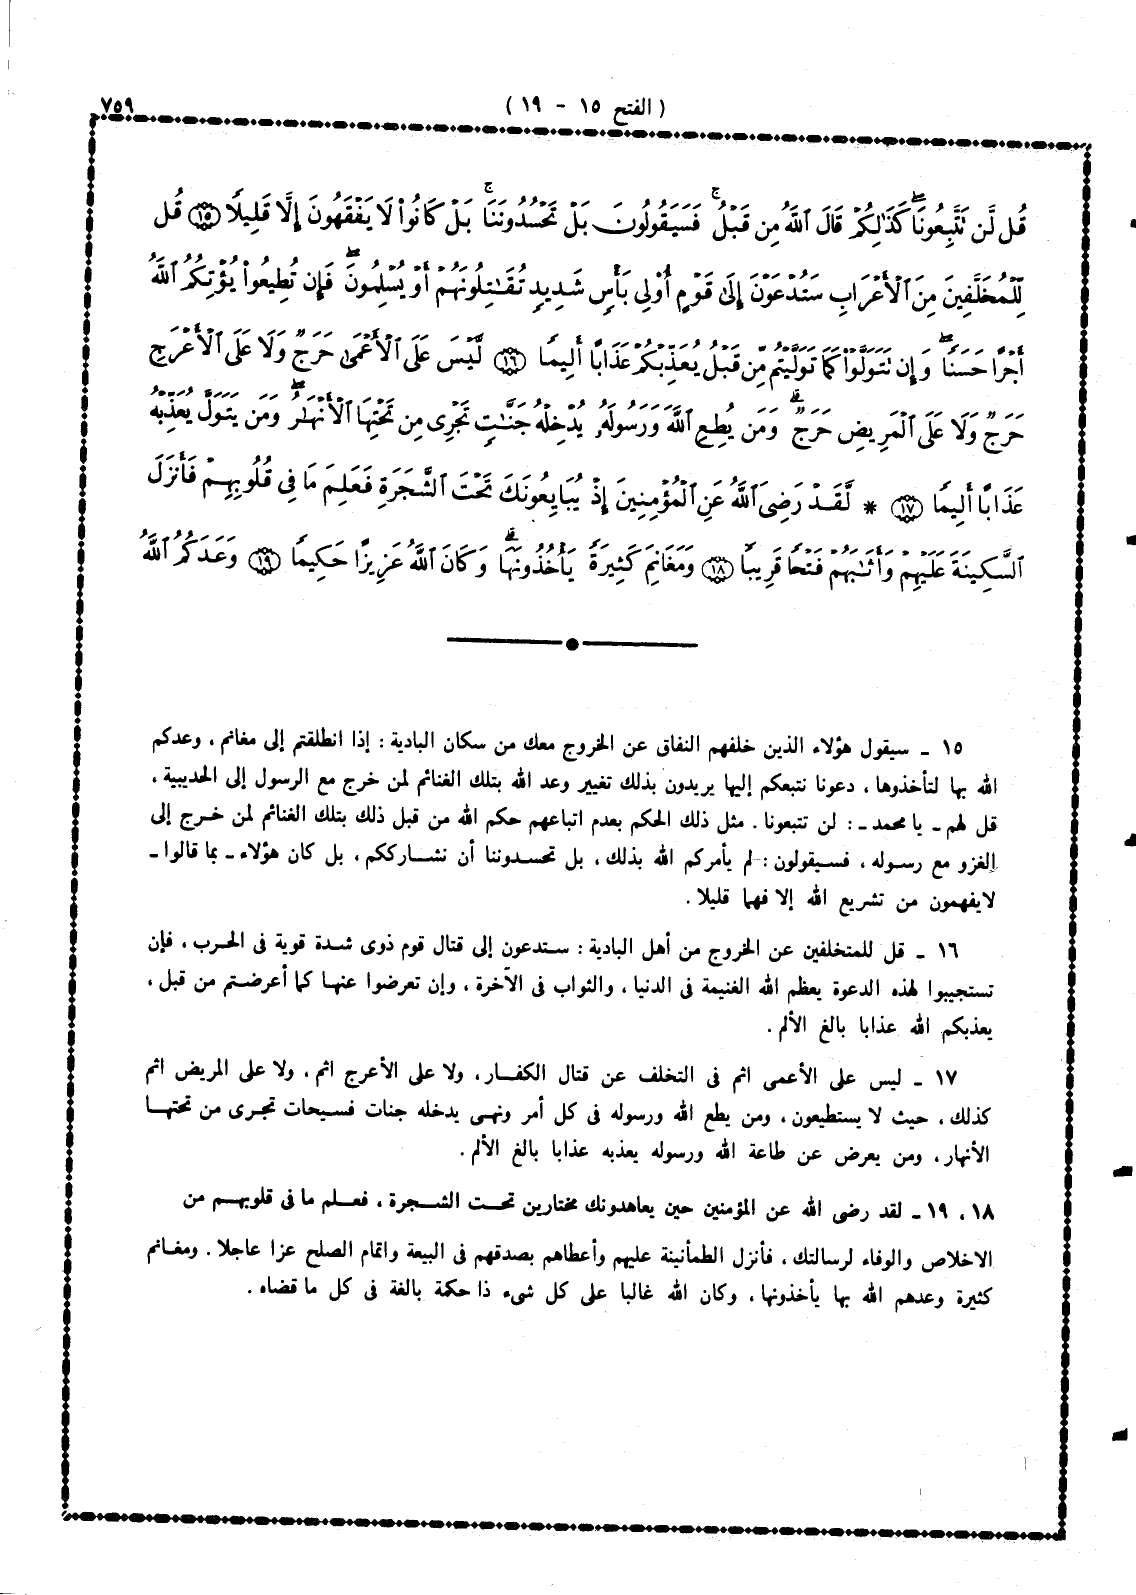 ٧٥٩
( الفتح ١٥ - ١٩ )
قُل لَّن تَتَّبِعُونَاۖ كَذَٰلِكُمۡ قَالَ ٱللَّهُ مِن قَبۡلُۖ فَسَيَقُولُونَ بَلۡ تَحۡسُدُونَنَاۚ بَلۡ كَانُواْ لَا يَفۡقَهُونَ إِلَّا قَلِيلٗا ١٥ قُل
لِّلۡمُخَلَّفِينَ مِنَ ٱلۡأَعۡرَابِ سَتُدۡعَوۡنَ إِلَىٰ قَوۡمٍ أُوْلِي بَأۡسٖ شَدِيدٖ تُقَٰتِلُونَهُمۡ أَوۡ يُسۡلِمُونَۖ فَإِن تُطِيعُواْ يُؤۡتِكُمُ ٱللَّهُ
أَجۡرًا حَسَنٗاۖ وَإِن تَتَوَلَّوۡاْ كَمَا تَوَلَّيۡتُم مِّن قَبۡلُ يُعَذِّبۡكُمۡ عَذَابًا أَلِيمٗا ١٦ لَّيۡسَ عَلَى ٱلۡأَعۡمَىٰ حَرَجٞ وَلَا عَلَى ٱلۡأَعۡرَجِ
حَرَجٞ وَلَا عَلَى ٱلۡمَرِيضِ حَرَجٞۗ وَمَن يُطِعِ ٱللَّهَ وَرَسُولَهُۥ يُدۡخِلۡهُ جَنَّٰتٖ تَجۡرِي مِن تَحۡتِهَا ٱلۡأَنۡهَٰرُۖ وَمَن يَتَوَلَّ يُعَذِّبۡهُ
عَذَابًا أَلِيمٗا ١٧ * لَّقَدۡ رَضِيَ ٱللَّهُ عَنِ ٱلۡمُؤۡمِنِينَ إِذۡ يُبَايِعُونَكَ تَحۡتَ ٱلشَّجَرَةِ فَعَلِمَ مَا فِي قُلُوبِهِمۡ فَأَنزَلَ
ٱلسَّكِينَةَ عَلَيۡهِمۡ وَأَثَٰبَهُمۡ فَتۡحٗا قَرِيبٗا ١٨ وَمَغَانِمَ كَثِيرَةٗ يَأۡخُذُونَهَاۗ وَكَانَ ٱللَّهُ عَزِيزًا حَكِيمٗا ١٩ وَعَدَكُمُ ٱللَّهُ
١٥ ـ سيقول هؤلاء الذين خلفهم النفاق عن الخروج معك من سكان البادية : إذا انطلقتم إلى مغانم ، وعدكم
الله بها لتأخذوها ، دعونا نتبعكم إليها يريدون بذلك تغيير وعد الله بتلك الغنائم لمن خرج مع الرسول إلى الحديبية ،
قل لهم ـ يا محمد ـ : لن تتبعونا . مثل ذلك الحكم بعدم اتباعهم حكم الله من قبل ذلك بتلك الغنائم لمن خرج إلى
الغزو مع رسوله ، فسيقولون : لم يأمركم الله بذلك ، بل تحسدوننا أن نشارككم ، بل كان هؤلاء ـ بما قالوا ـ
لا يفهمون من تشريع الله إلا فهما قليلا .
١٦ ـ قل للمتخلفين عن الخروج من أهل البادية : ستدعون إلى قتال قوم ذوى شدة قوية فى الحرب ، فإن
تستجيبوا لهذه الدعوة يعظم الله الغنيمة فى الدنيا ، والثواب فى الآخرة ، وإن تعرضوا عنها كما أعرضتم من قبل ،
يعذبكم الله عذابا بالغ الألم .
١٧ ـ ليس على الأعمى اثم فى التخلف عن قتال الكفار ، ولا على الأعرج اثم ، ولا على المريض اثم
كذلك ، حيث لا يستطيعون ، ومن يطع الله ورسوله فى كل أمر ونهى يدخله جنات فسيحات تجرى من تحتها
الأنهار ، ومن يعرض عن طاعة الله ورسوله يعذبه عذابا بالغ الألم .
١٨ ، ١٩ ـ لقد رضى الله عن المؤمنين حين يعاهدونك مختارين تحت الشجرة ، فعلم ما فى قلوبهم من
الاخلاص والوفاء لرسالتك ، فأنزل الطمأنينة عليهم وأعطاهم بصدقهم فى البيعة واتمام الصلح عزا عاجلا . ومغانم
كثيرة وعدهم الله بها يأخذونها ، وكان الله غالبا على كل شىء ذا حكمة بالغة فى كل ما قضاه .